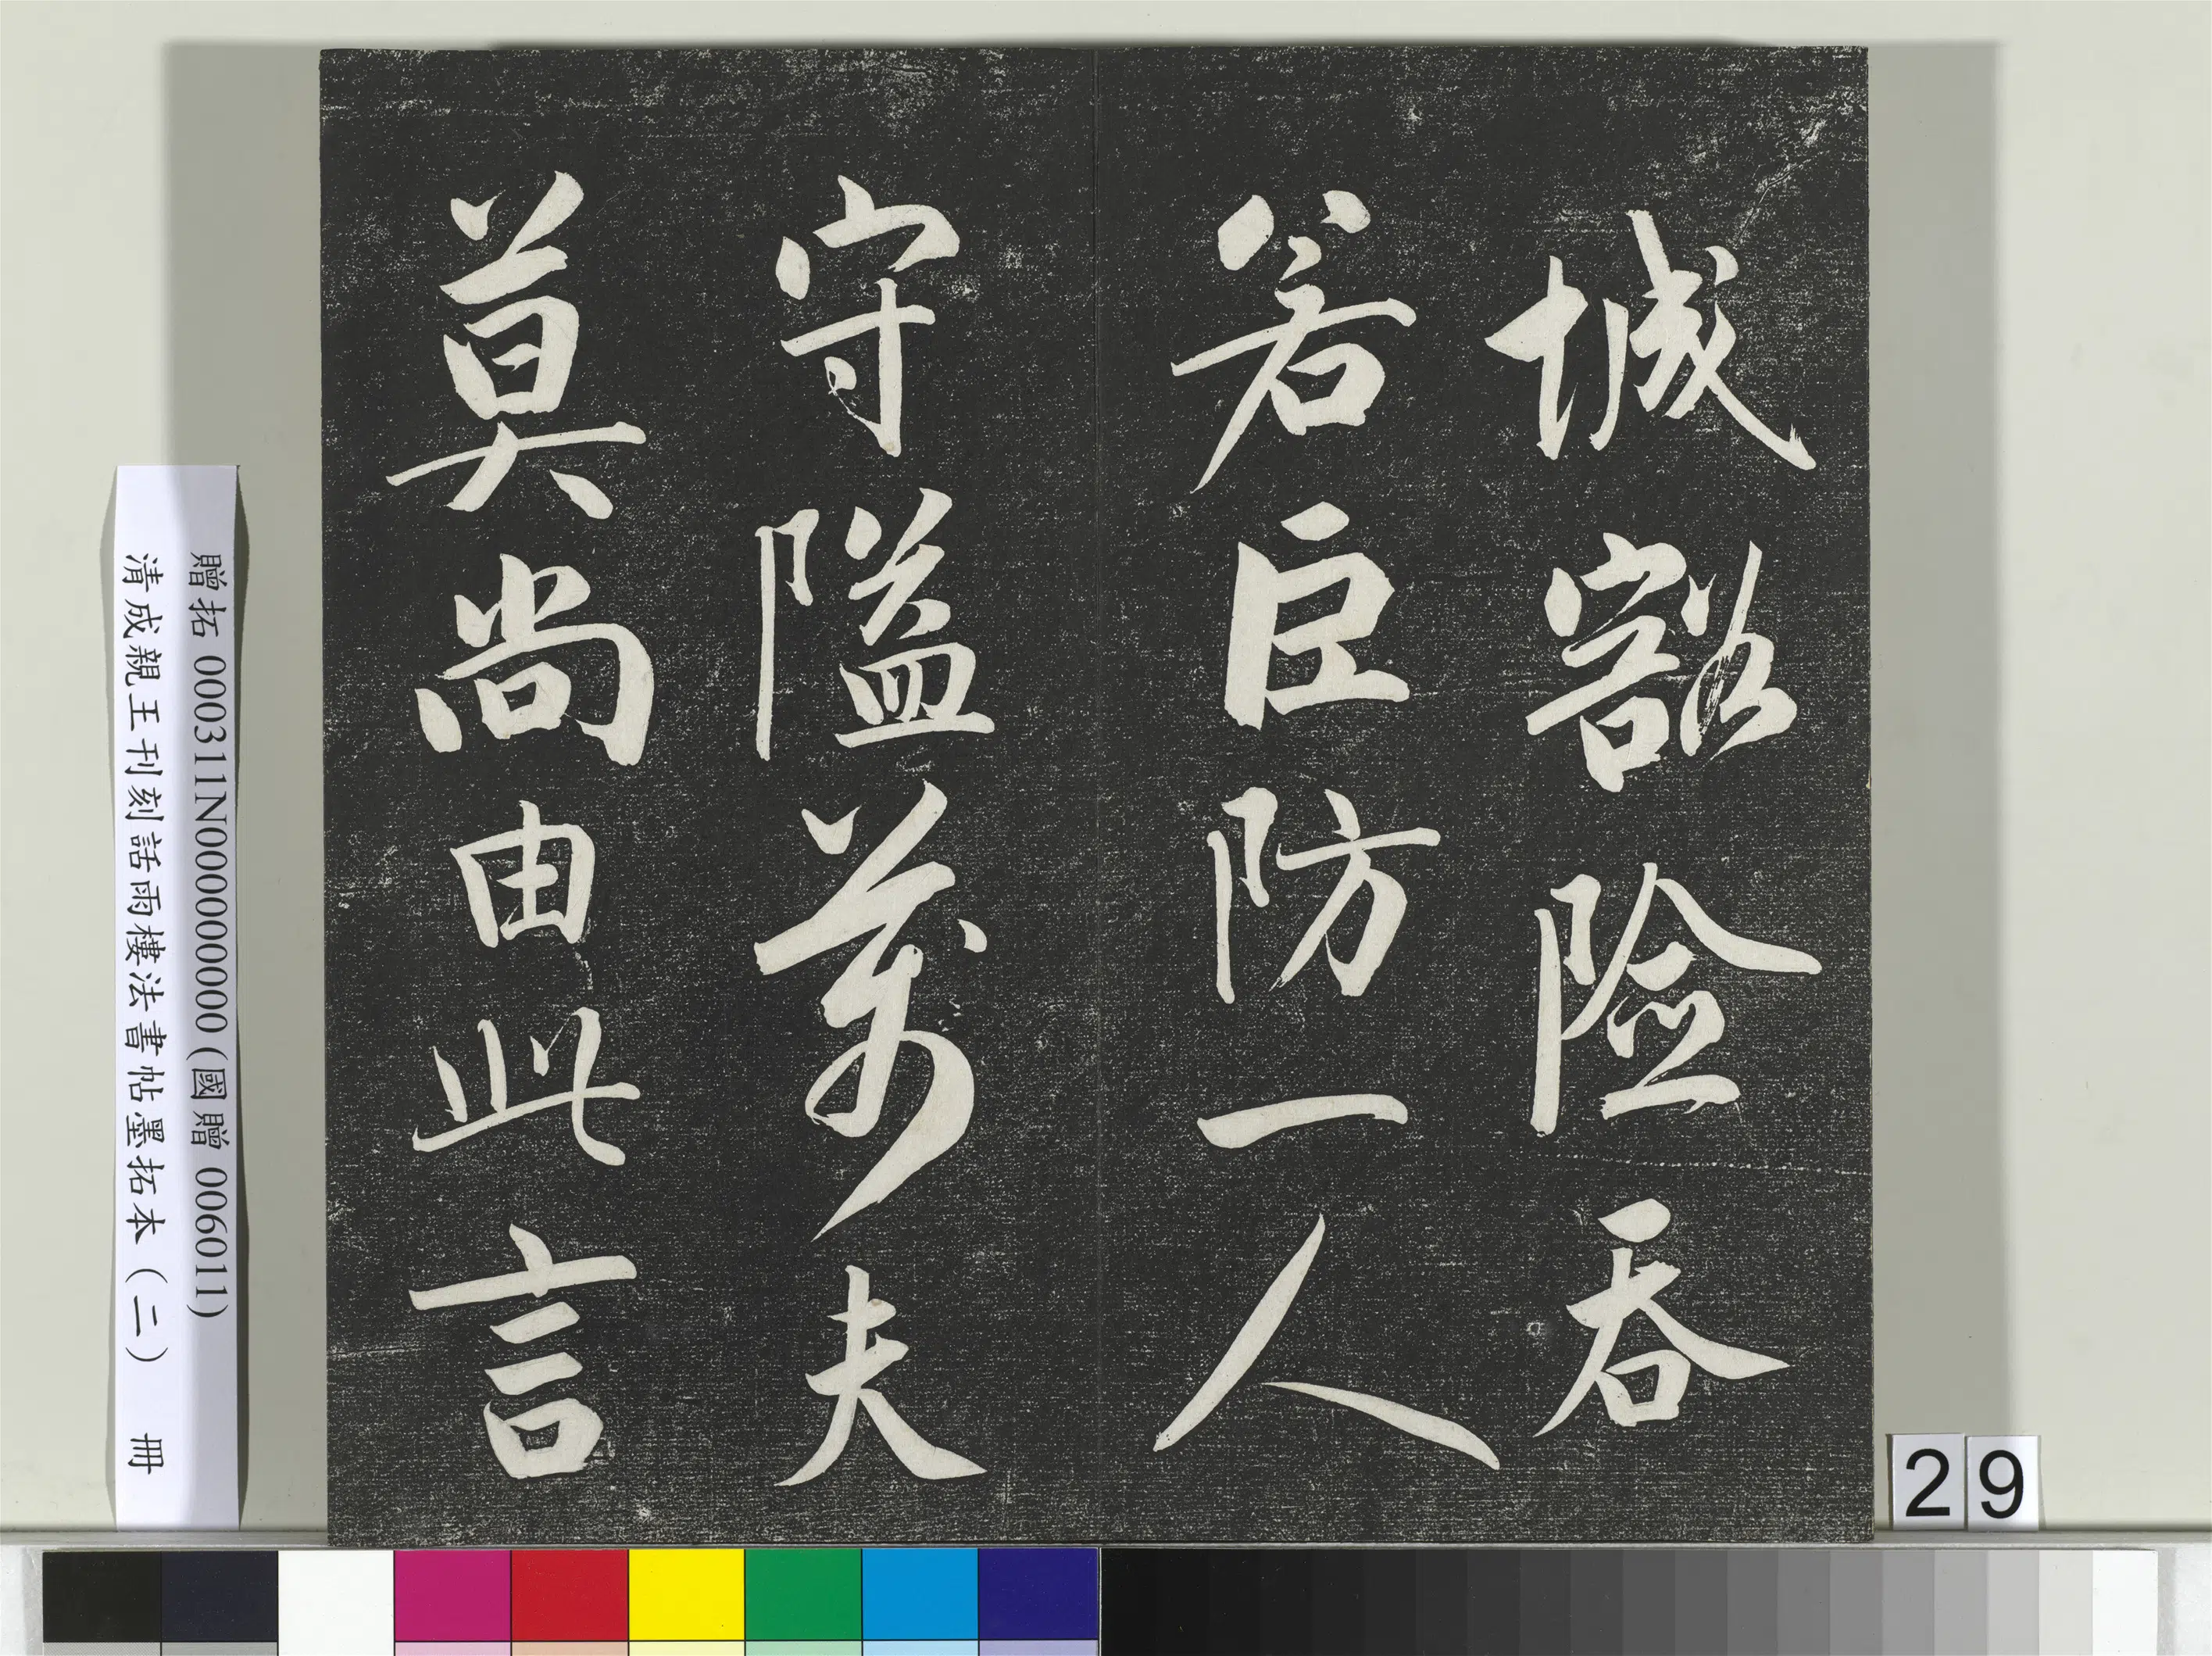 城豁險吞
若臣防一人
守隘萬夫
莫尚由此言
贈拓 000311N000000000 (國贈 006011)
清成親王刊刻話雨樓法書帖墨拓本（二） 冊
29